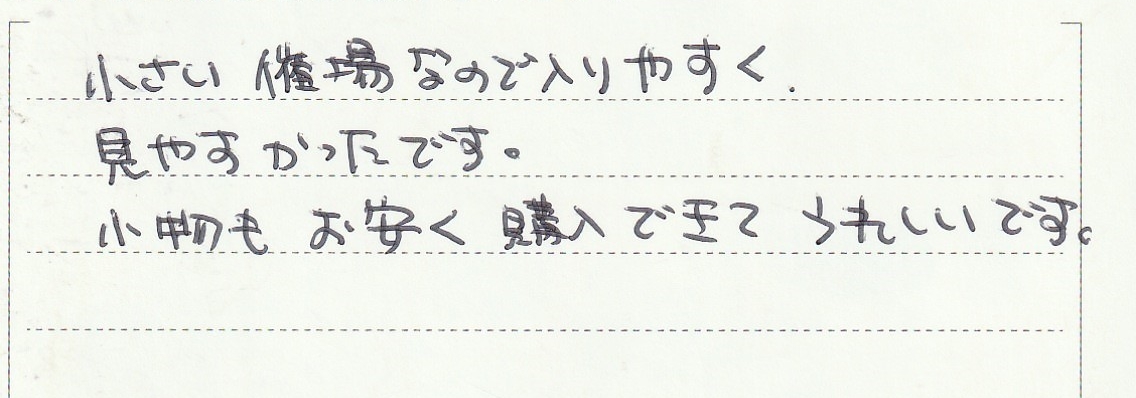 小さい催場なので入りやすく、
見やすかったです。
小物もお安く購入できてうれしいです。